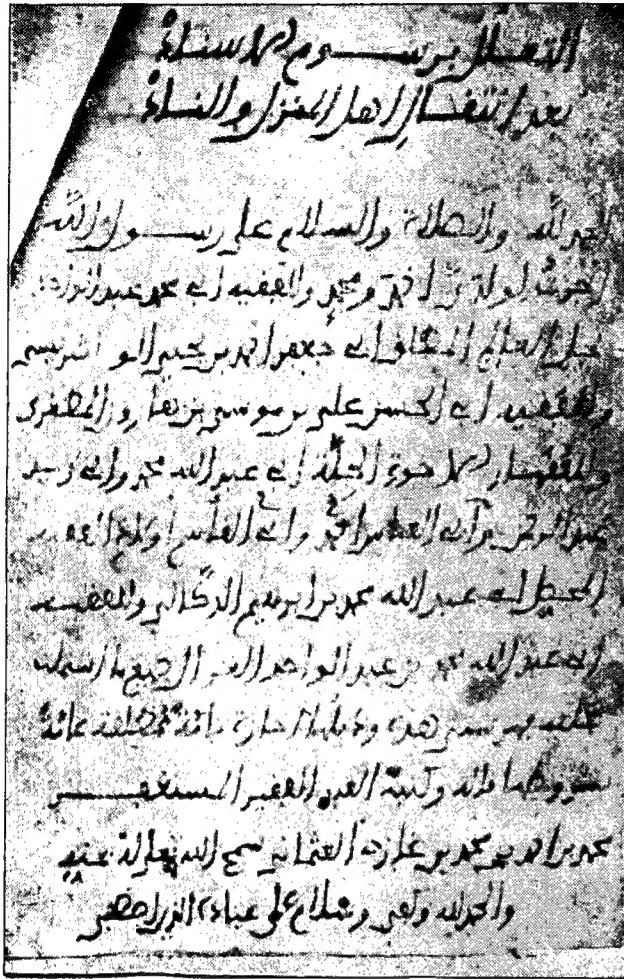 التعلل برسوم الإسناد
بعد انتقال أهل المنزل والناد
الحمد لله والصلاة والسلام على رسول الله
أجزت لولدي أحمد ومحمد وللفقيه أبي محمد عبد الواحد
نجل العالم أبي جعفر أحمد بن يحيى الونشريسي
وللفقيه أبي الحسن علي بن موسى بن هارون المضغري
وللفقهاء الإخوة الجلة أبي عبد الله محمد وأبي زيد
عبد الرحمن وأبي العباس أحمد وأبي القاسم أولاد الفقيه
أبي عبد الله محمد بن إبراهيم الدكالي وللفقيه
أبي عبد الله محمد بن عبد الواحد جميع ما اشتملت
عليه فهرستي هذه إجازة تامة مطلقة عامة
بشروطها وكتبه العبد الفقير المستغفر
محمد بن أحمد بن محمد بن غازي العثماني سمح الله تعالى له بمنه
والحمد لله وكفى وسلام على عباده الذين اصطفى